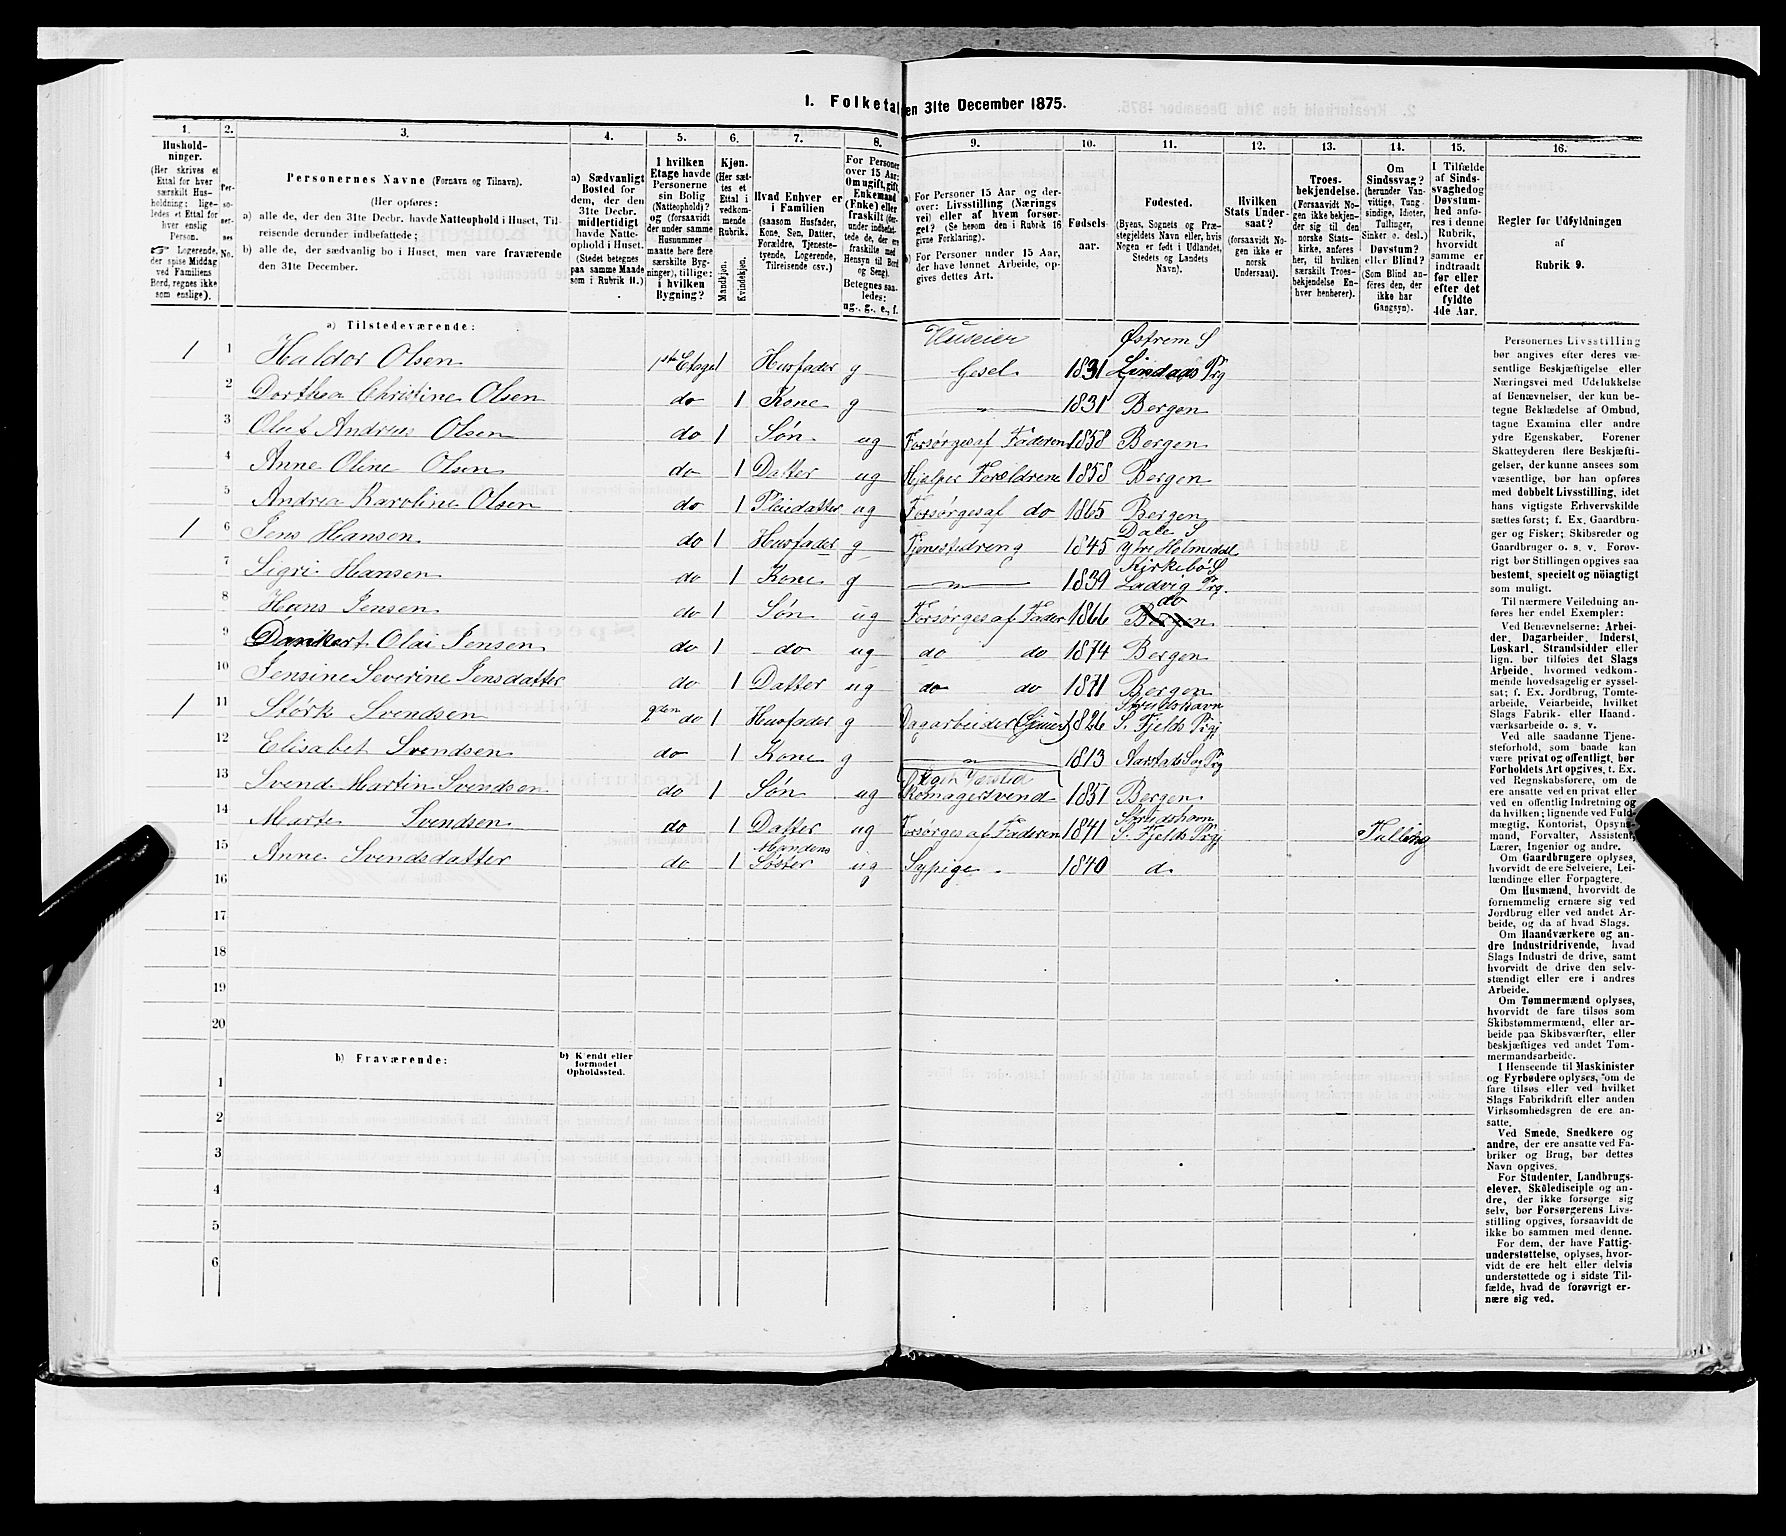 I. Folketal den 31te December 1875.
1. 2. 3. 4. 5. 6. 7. 8. 9. 10. 11. 12. 13. 14. 15. 16.
Hushold-
ninger.
(Her skrives et
Ettal for hver
særskilt Hus-
holdning; lige-
ledes et Ettal for
hver enslig
Person.
☞ Logerende,
der spise Middag
ved Familiens
Bord, regnes ikke
som enslige).
Per-
so-
ner-
nes
No.
Personernes Navne (Fornavn og Tilnavn).
(Her opføres:
a) alle de, der den 31te Decbr. havde Natteophold i Huset, Til-
reisende derunder indbefattede;
b) alle de, der sædvanlig bo i Huset, men vare fraværende
den 31te December.
a) Sædvanligt
Bosted for
dem, der den
31te Decbr.
midlertidigt
havde Natte-
ophold i Huset.
(Stedet betegnes
paa samme Maade
som i Rubrik 11.)
I hvilken
Etage havde
Personerne
sin Bolig
(Natteophold)?
og (forsaavidt
der under samme
Husnummer
maatte høre flere
særskilte Byg-
ninger), tillige:
i hvilken
Bygning?
Kjøn.
(Her sæt-
tes et
Ettal i
vedkom-
mende
Rubrik.
Mandkjøn.
Kvindekjøn.
Hvad Enhver er
i Familien
(saasom Husfader,
Kone, Søn, Datter,
Forældre, Tjeneste-
tyende, Logerende,
Tilreisende osv.).
For Personer
over 15 Aar:
Om ugift, gift,
Enkemand
(Enke) eller
fraskilt (der-
under indbefat-
tede de, der ere
fraskilte med
Hensyn til Bord
og Seng).
Betegnes saa-
ledes:
ug., g., e., f.
a) For Personer 15 Aar og der-
over: Livsstilling (Nærings-
vei) eller af hvem forsør-
get? (Se herom den i Rubrik 16
givne Forklaring).
b) For Personer under 15 Aar,
der have lønnet Arbeide, op-
gives dettes Art.
Fødsels-
aar.
Fødested.
(Byens, Sognets og Præ-
stegjeldets Navn eller, hvis
Nogen er født i Udlandet,
Stedets og Landets
Navn).
Hvilken
Stats Under-
saat?
(forsaavidt No-
gen ikke er
norsk
Undersaat).
Troes-
bekjendelse.
(Forsaavidt No-
gen ikke bekjen-
der sig til den
norske Stats-
kirke, anføres
her, til hvilken
særskilt Troes-
bekjendelse En-
hver henhører).
Om
Sindssvag?
(herunder Van-
vittige, Tung-
sindige, Idioter,
Tullinger,
Sinker o. desl.)
Døvstum?
eller Blind?
(Som Blind an-
føres den, der
ikke har
Gangsyn).
I Tilfælde
af Sinds-
svaghed og
Døvstum-
hed anfø-
res i denne
Rubrik,
hvorvidt
samme er
indtraadt
før eller
efter det
fyldte
4de Aar.
Regler før Udfyldningen
af
Rubrik 9.
a) Tilstedeværende:
Huseier Østrem S
1 1 Haldor Olsen 1ste Etage 1 Husfader g Gesel. 1831 Lindaas Prg
2 Dorthea Christine Olsen do 1 Kone g " 1831 Bergen
3 Oluf Andreas Olsen do 1 Søn ug Forsørges af Faderen 1858 Bergen
4 Anne Oline Olsen do 1 Datter ug Hjelper Forældrene 1858 Bergen
5 Andrea Karoline Olsen do 1 Pleiedatter ug Forsørges af do 1865 Bergen
Dale S
1 6 Jens Hansen do 1 Husfader g Tjenestedreng 1845 Ytre Holmedal
Kirkebø S
7 Sigri Hansen do 1 Kone g " 1839 Ladvig Prg.
do
8 Hans Jensen do 1 Søn ug Forsørges af Fader 1866 Bergen
9 Dankert Olai Jensen do 1 do ug do do 1874 Bergen
10 Jensine Severine Jensdatter do 1 Datter ug do do 1871 Bergen
1 11 Størk Svendsen 2den do 1 Husfader g Dagarbeider 1826 S. Fjelds Prgj
12 Elisabet Svendsen do 1 Kone g " 1813 Aarstad Sog Prg
13 Svend Martin Svendsen do 1 Søn ug Skomagersvend 1851 Bergen
14 Marte Svendsen do 1 Datter ug Forsørges af Faderen 1841 S. Fjelds Prgj Tulling
Mandens
15 Anne Svendsdatter do 1 Søster ug Sypige 1840 d.
16
17
18
19
20
b) Fraværende:
b) Kjendt eller
formodet
Opholdssted.
1
2
3
4
5
6
Personernes Livsstilling
bør angives efter deres væ-
sentlige Beskjæftigelse eller
Næringsvei med Udelukkelse
af Benævnelser, der kun be-
tegne Beklædelse af Ombud,
tagne Examina eller andre
ydre Egenskaber. Forener
Skatteyderen flere Beskjæfti-
gelser, der kunne ansees som
væsentlige, bør han opføres
med dobbelt Livsstilling, idet
hans vigtigste Erhvervskilde
sættes først; f. Ex. Gaardbru-
ger og Fisker; Skibsreder og
Gaardbruger o. s. v. Forøv-
rigt bør Stillingen opgives saa
bestemt, specielt og nøiagtigt
som muligt.
Til nærmere Veiledning an-
føres her endel Exempler:
Ved Benævnelserne: Arbei-
der, Dagarbeider, Inderst,
Løskarl, Strandsidder eller
lign. bør tilføies det Slags
Arbeide, hvormed vedkom-
mende hovedsagelig er syssel-
sat; f. Ex. Jordbrug, Tomte-
arbeide, Veiarbeide, hvilket
Slags Fabrik- eller Haand-
værksarbeide o. s. v.
Ved alle saadanne Tjene-
steforhold, som baade kan
være privat og offentligt, bør
Forholdets Art opgives, t. Ex.
ved Regnskabsførere, om de
ere ansatte ved en privat eller
ved en offentlig Indretning og
da hvilken; lignende ved Fuld-
mægtig, Kontorist, Opsyns-
mand, Forvalter, Assistent,
Lærer, Ingeniør og andre.
Om Gaardbrugere oplyses,
hvorvidt de ere Selveiere, Lei-
lændinge eller Forpagtere.
Om Husmænd, hvorvidt de
fornemmelig ernære sig ved
Jordbrug eller ved andet Ar-
beide, og da af hvad Slags.
Om Haandværkere og an-
dre Industridrivende, hvad
Slags Industri de drive, samt
hvorvidt de drive den selv-
stændigt eller ere i andres
Arbeide.
Om Tømmermænd oplyses,
hvorvidt de fare tilsøs som
Skibstømmermænd, eller ar-
beide paa Skibsværfter, eller
beskjæftiges ved andet Tøm-
mermandsarbeide.
I Henseende til Maskinister
og Fyrbødere oplyses, om de
fare tilsøs eller ved hvilket
Slags Fabrikdrift eller anden
Virksomhedsgren de ere an-
satte.
Ved Smede, Snedkere og
andre, der ere ansatte ved Fa-
briker og Brug, bør dettes
Navn opgives.
For Studenter, Landbrugs-
elever, Skoledisciple og an-
dre, der ikke forsørge sig
selv, bør Forsørgerens Livs-
stilling opgives, forsaavidt de
ikke bo sammen med denne.
For dem, der have Fattig-
understøttelse, oplyses, hvor-
vidt de ere helt eller delvis
understøttede og i sidste Til-
fælde, hvad de forøvrigt er-
nære sig ved.